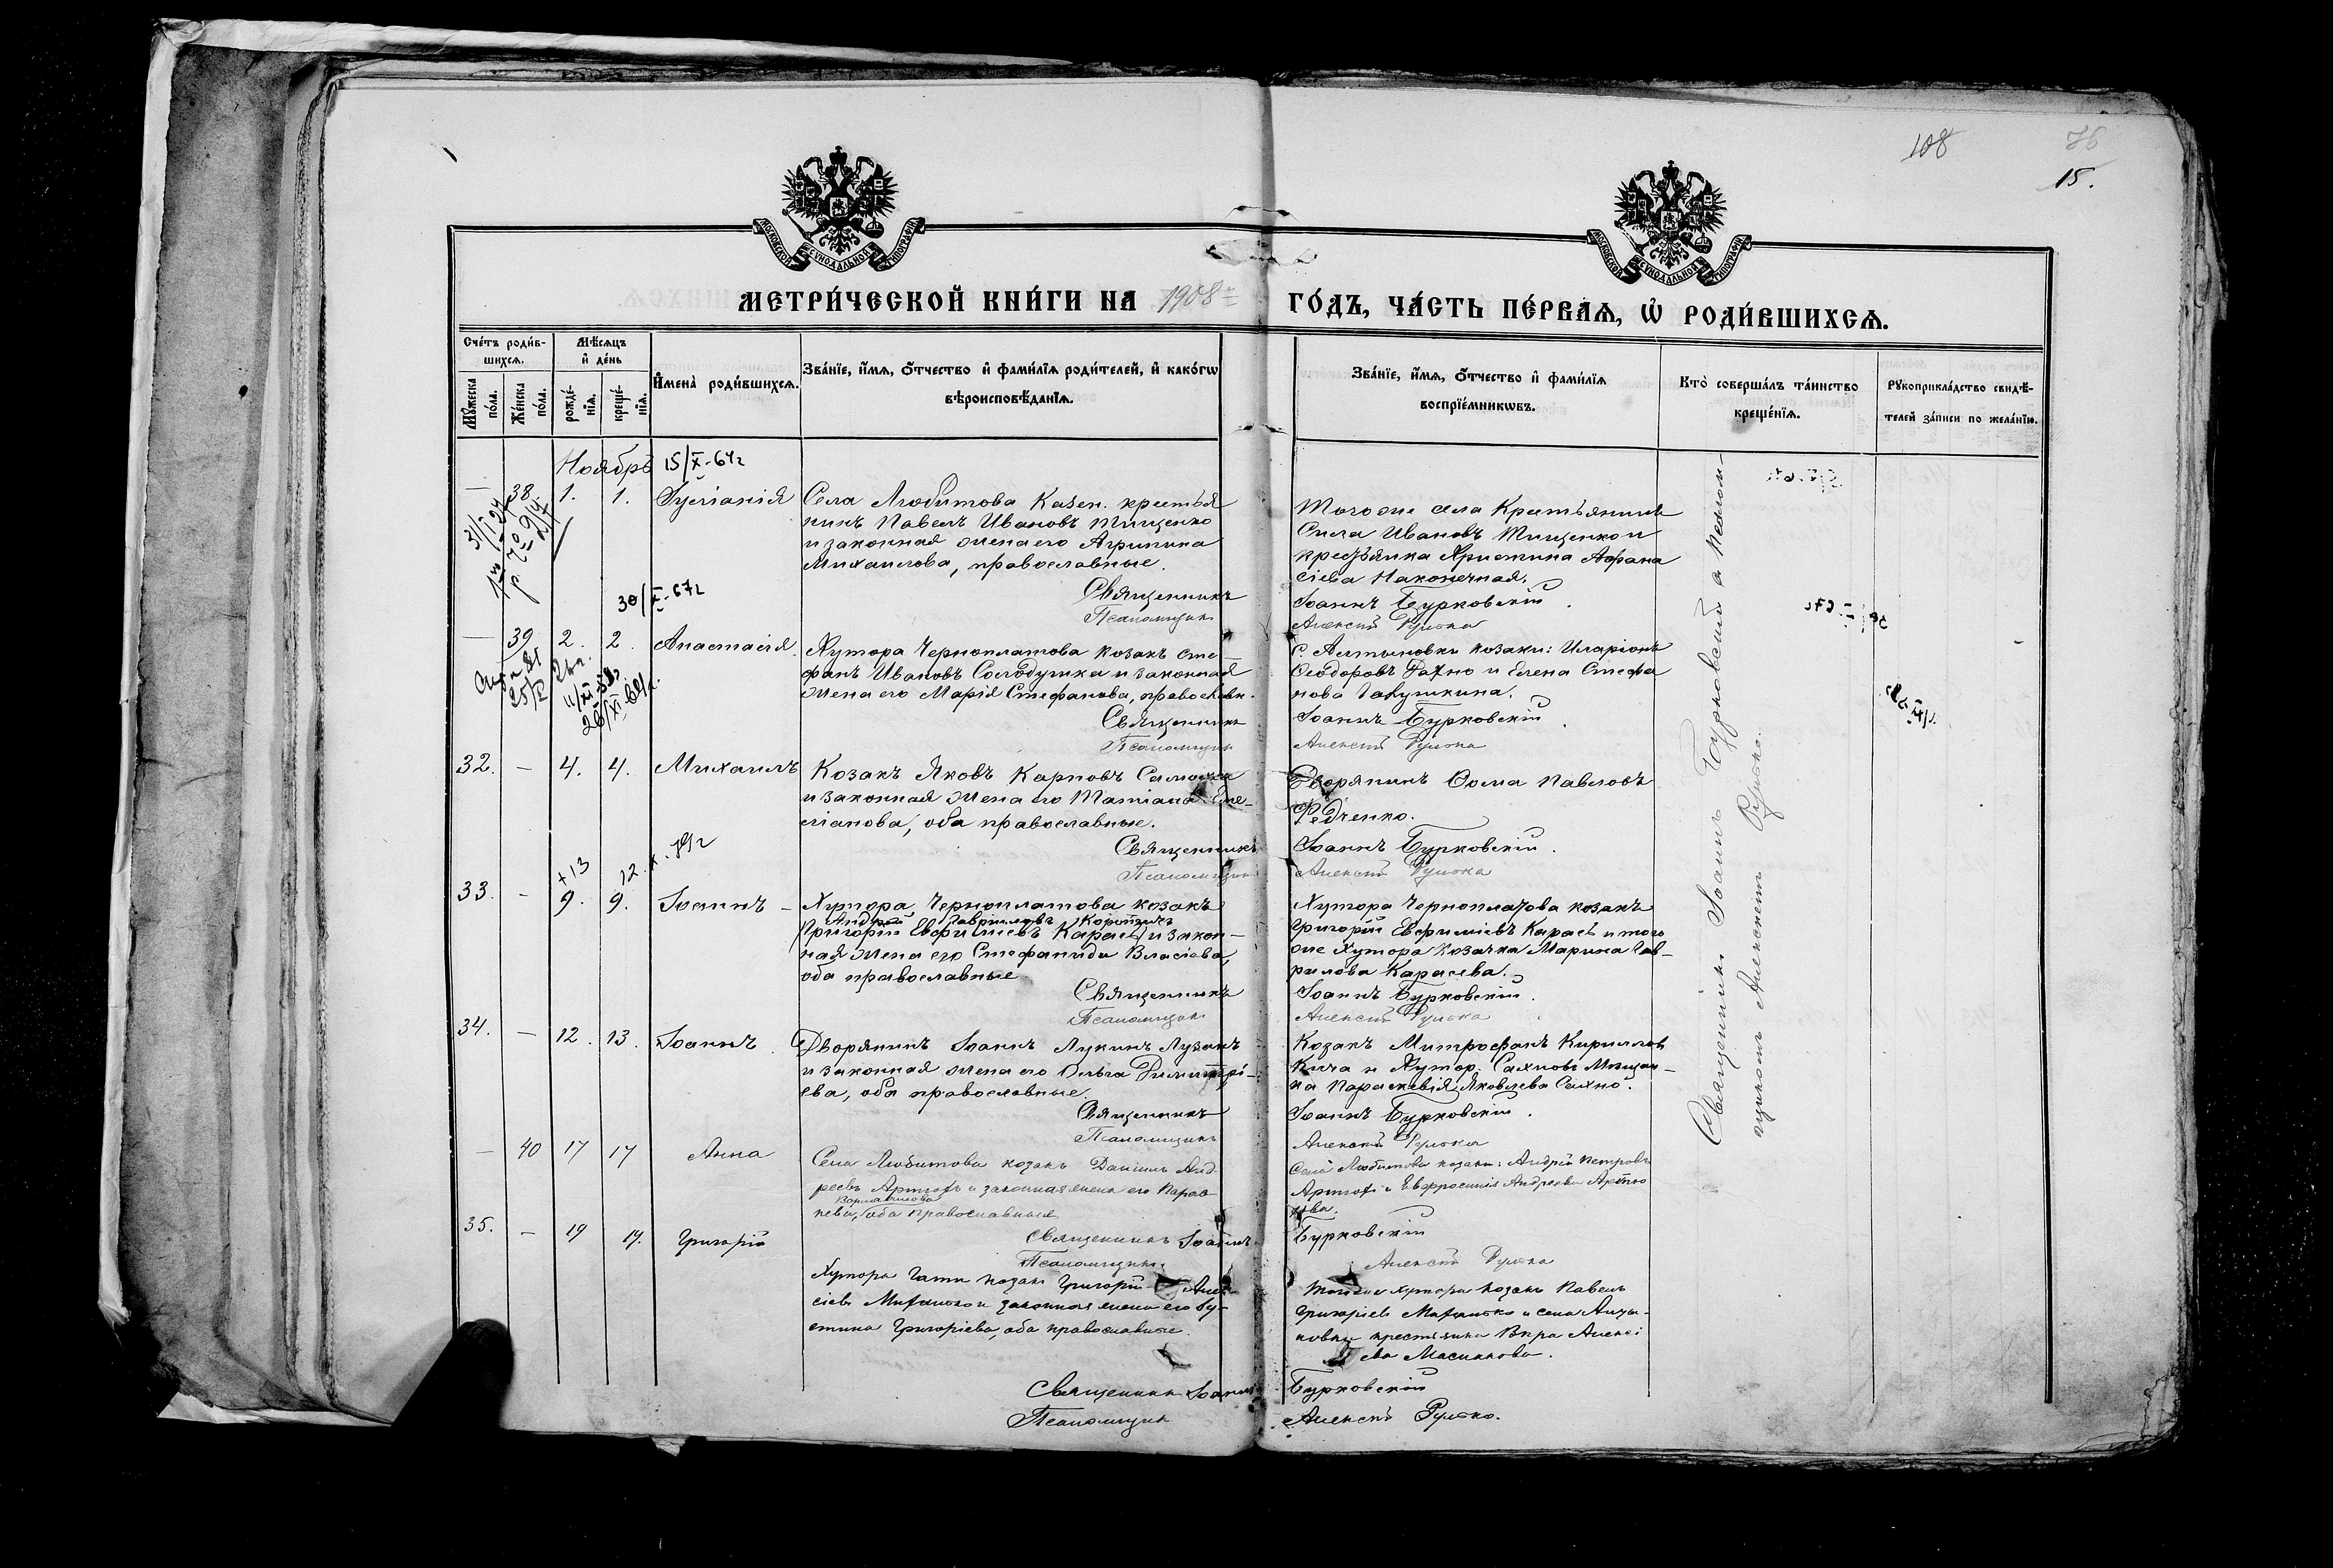 108
76
15.
МОСКОВСКОЙ СѴНОДАЛЬНОЙ ТИПОГРАФІИ
МОСКОВСКОЙ СѴНОДАЛЬНОЙ ТИПОГРАФІИ
МЕТРИ́ЧЕСКОЙ КНИ́ГИ НА 1908 ГО́ДЪ, ЧА́СТЬ ПЕ́РВАЯ, Ѡ РОДИ́ВШИХСЯ.
Сче́тъ роди́в-
шихся.
Мꙋ́жеска по́ла.
Же́нска по́ла.
Мѣ́сяцъ и де́нь
рожде́нїя.
креще́нїя.
И҆мена̀ роди́вшихся.
Зва́нїе, и҆́мя, ѻ҆́тчество и҆ фами́лїя роди́телей, и҆ како́гѡ
вѣроисповѣ́данїя.
Зва́нїе, и҆́мя, ѻ҆́тчество и҆ фами́лїя
воспрїе́мникѡвъ.
Кто̀ соверша́лъ та́инство
креще́нїя.
Рꙋкоприкла́дство свидѣ́-
телей за́писи по жела́нїю.
Ноябрь 15/X-64г
— 38 1. 1. Іуліанія
Села Любитова Казен. крестья
нинъ Павелъ Ивановъ Тищенко
и законная жена его Агрипина
Михаилова, православные.
Священникъ
Псаломщикъ
Того же села Крестьянинъ
Сила Ивановъ Тищенко и
крестьянка Христина Афана
сіева Наконечная.
Іоаннъ Бурковскій
Алексѣй Рулька
30/X-67г
— 39 2. 2 Анастасія
Хутора Черноплатова козакъ Сте
фанъ Ивановъ Солодушка и законная
жена его Марія Стефанова, православн.
Священникъ
Псаломщикъ
С. Алтыновки козаки: Иларіонъ
Ѳеодоровъ Рахно и Елена Стефа
нова
Іоаннъ Бурковскій
Алексѣй Рулька
32. — 4. 4. Михаилъ
Козакъ Яковъ Карповъ
и законная жена его Татіана Еме-
ліанова, оба православные.
Священникъ
Псаломщикъ
Дворянинъ Ѳома Павловъ
Федченко.
Іоаннъ Бурковскій
Алексѣй Рулька
+13 12.X-79г
33. — 9. 9. Іоаннъ
Хутора Черноплатова козакъ
Андрей Гавріиловъ
Григорій Евфиміевъ Карась и закон-
ная жена его Стефанида Власіева,
оба православные
Священникъ
Псаломщикъ
Хутора Черноплатова козакъ
Григорій Евфиміевъ Карась и того
же хутора козачка Марина Гав-
рилова Карасева.
Іоаннъ Бурковскій
Алексѣй Рулька
34. — 12. 13. Іоаннъ
Дворянинъ Іоаннъ Лукинъ Лузанъ
и законная жена его Ольга Димитрі-
ева, оба православные.
Священникъ
Псаломщикъ
Козакъ Митрофанъ Кирилловъ
Кича и Хутор. Сахновъ Мѣщан-
ка Параскевія Яковлева Сахно.
Іоаннъ Бурковскій
Алексѣй Рулька
— 40 17 17 Анна
Села Любитова козакъ Даніилъ Анд-
реевъ Артюхъ и законная жена его Парас-
кева, оба православные
Священникъ Іоаннъ
Псаломщикъ
Села Любитова козаки: Андрей Петровъ
Артюхъ и Евфросинія Андреева Артю
хова.
Бурковскій
Алексѣй Рулька
35. — 19 19. Григорій
Хутора Гати козакъ Григорій Алек-
сіевъ и законная жена его Іу-
стина Григоріева, оба православные.
Священникъ Іоаннъ
Псаломщикъ
Того же хутора козакъ Павелъ
Григоріевъ и села Алты-
новки крестьянка Вѣра Алексі
ева
Бурковскій
Алексѣй Рулько.
Священникъ Іоаннъ Бурковскій съ псалом-
щикомъ Алексѣемъ Рулько.